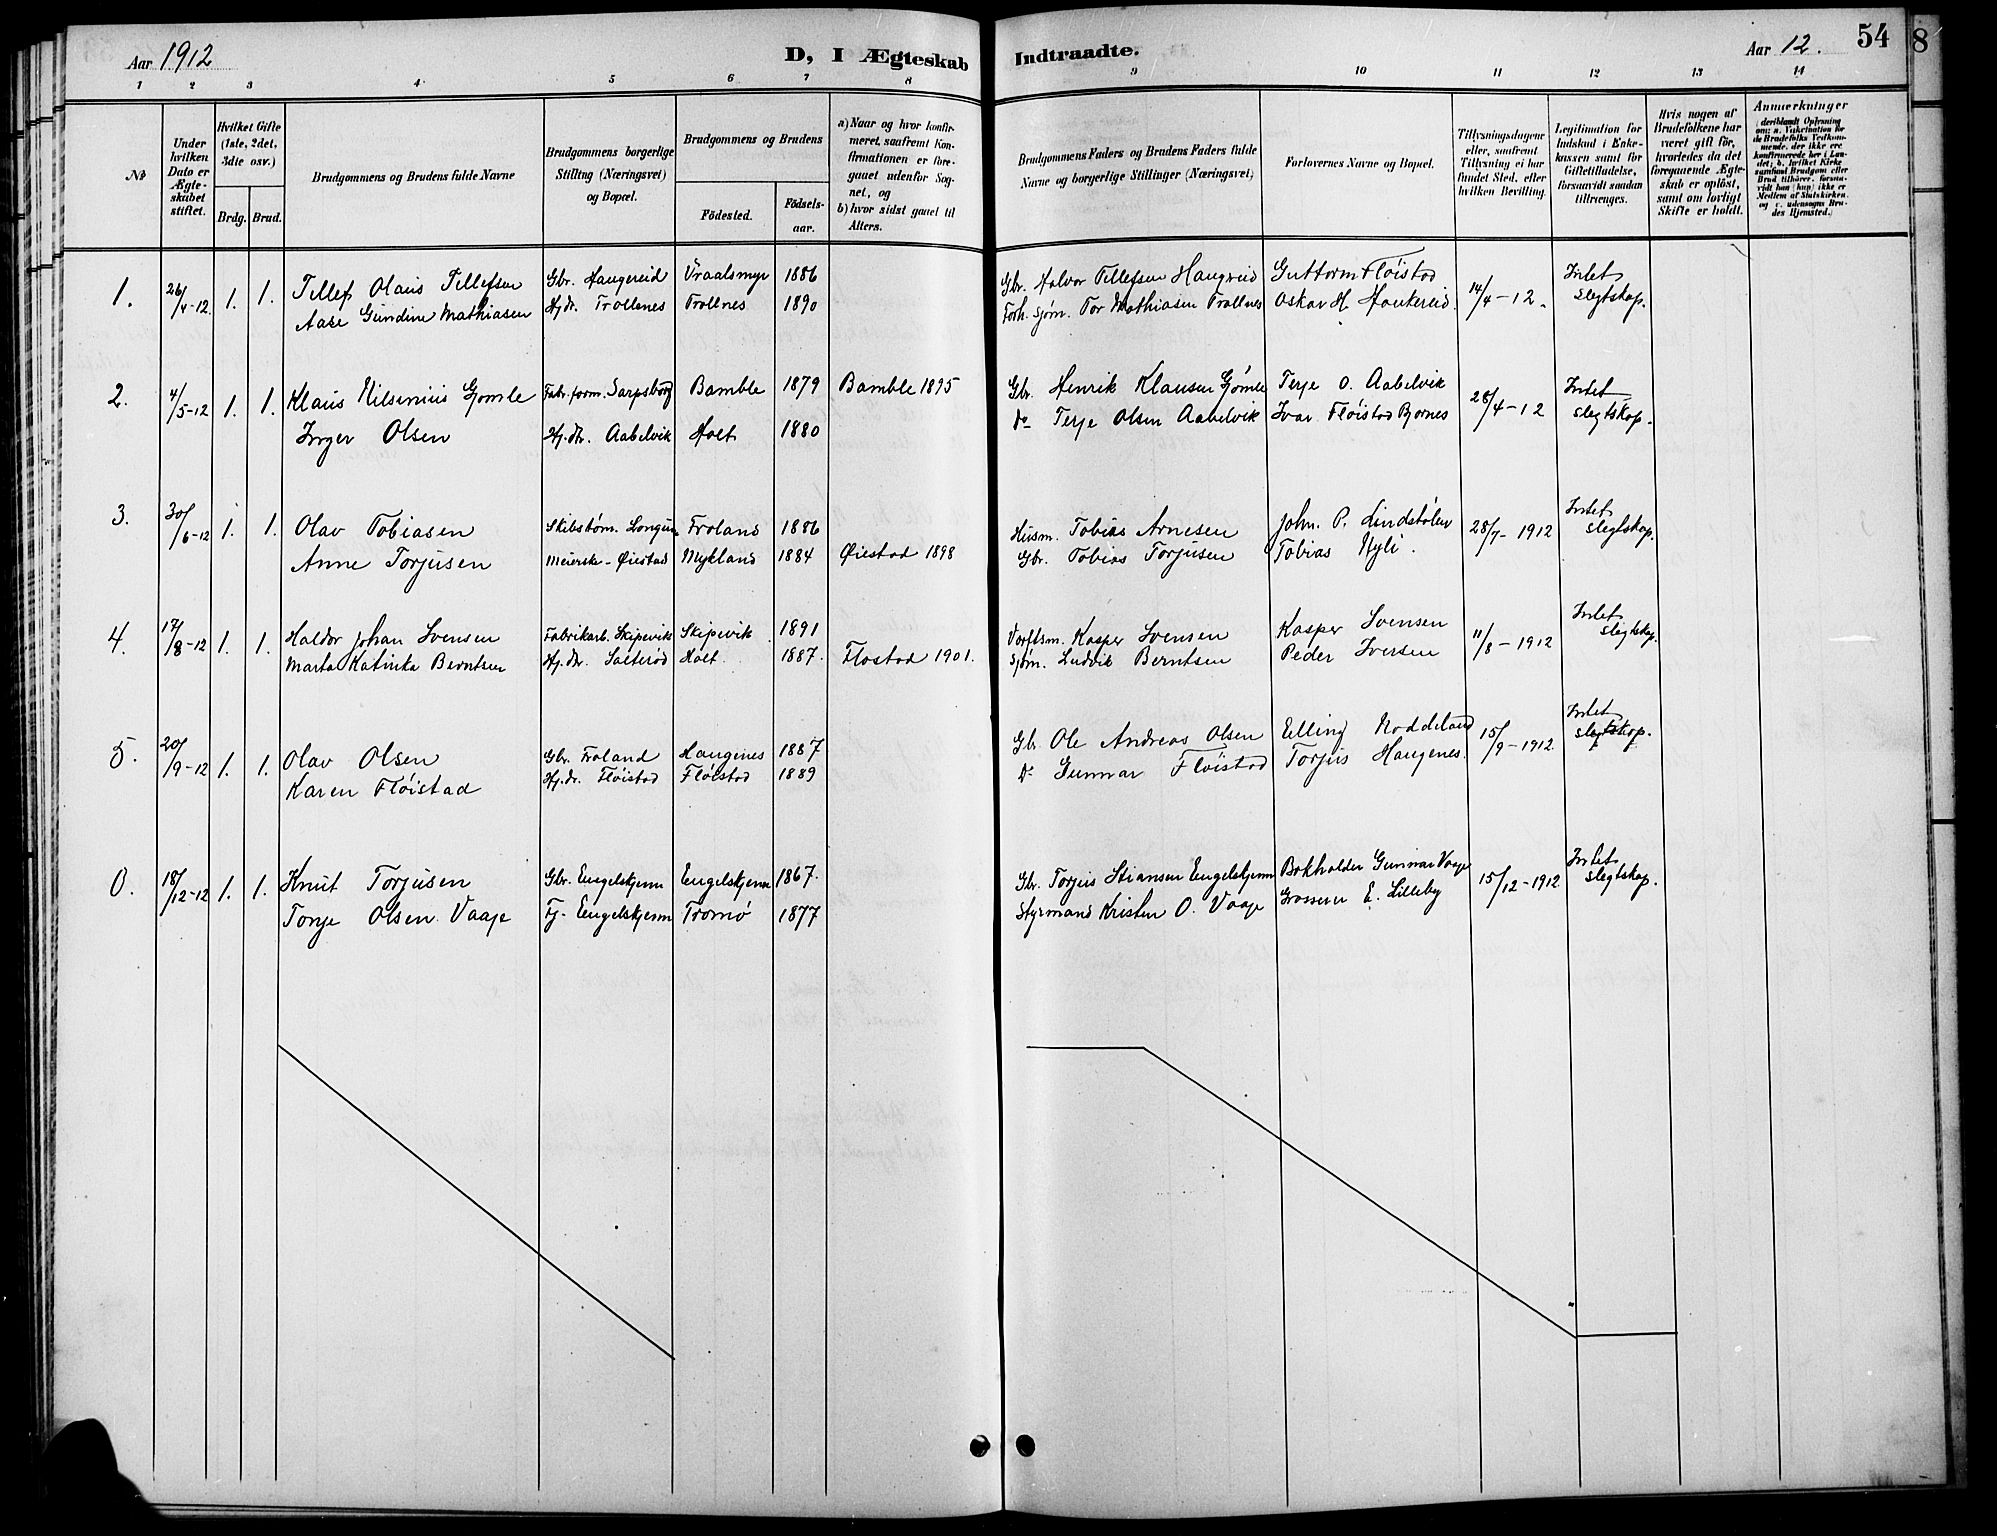 Aar 1912
D, I Ægteskab Indtraadte.
Aar 12.
54
8
1 2 3 4 5 6 7 8 9 10 11 12 13 14
№
Under hvilken Dato er Ægteskabet stiftet.
Hvilket Gifte (1ste, 2det, 3die osv.)
Brdg. Brud.
Brudgommens og Brudens fulde Navne
Brudgommens borgerlige Stilling (Næringsvei) og Bopæl.
Brudgommens og Brudens
Födested.
Födsels-aar.
a) Naar og hvor konfirmeret, saafremt Konfirmationen er foregaaet udenfor Sognet, og
b) hvor sidst gaaet til Alters.
Brudgommens Faders og Brudens Faders fulde Navne og borgerlige Stillinger (Næringsvei)
Forlovernes Navne og Bopæl.
Tillysningsdagene eller, saafremt Tillysning ei har fundet Sted, efter hvilken Bevilling.
Legitimation for Indskud i Enkekassen samt for Giftetilladelse, forsaavidt saadan tiltrænges.
Hvis nogen af Brudefolkene har været gift för, hvorledes da det foregaaende Ægteskab er oplöst, samt om lovligt Skifte er holdt.
Anmerkninger
1. 26/4-12 1. 1. Tellef Olaus Tellefsen Gbr. Haugereid Vraalsmyr 1886 Gbr. Halvor Tellefsen Haugreid Guttorm Fløistad 14/4-12. Intet
Aase Gundine Mathiasen Hj.dr. Trollenes Trollnes 1890 Forh. sjøm. Tor Mathiasen Trollnes Oskar H. Haukereid slegtskap.
2. 4/5-12 1. 1. Klaus Nilsenius Gjømle Fabr. form. Sarpsborg Bamble 1879 Bamble 1895 Gbr. Henrik Klausen Gjømle Terje O. Aabelvik 28/4-12 Intet
Inger Olsen Hj.dtr. Aabelvik Holt 1880 Do Terje Olsen Aabelvik Ivar Fløistad Bjornes slegtskap.
3. 30/6-12 1. 1. Olav Tobiasen Skibstøm. Longum Froland 1886 Husm. Tobias Arnesen John. P. Lindstølen 28/7-1912 Intet
Anne Torjusen Meierske - Øiestad Mykland 1884 Øiestad 1898 Gbr. Tobias Torjusen Tobias Nyli. slegtskap.
4. 17/8-12 1. 1. Haldor Johan Svensen Fabrikarb. Skipevik Skipevik 1891 Værftsm. Kasper Svensen Kasper Svensen 11/8-1912 Intet
Marta Katinka Berntsen Hj.dtr. Salterød Holt 1887. Flostad 1901. Sjøm. Ludvik Berntsen Peder Iversen slegtskap.
5. 20/9-12 1. 1. Olav Olsen Gbr. Froland Haugenes 1887 Gb. Ole Andreas Olsen Elling Noddeland 15/9-1912 Intet
Karen Fløistad Hj.dr. Fløistad Fløistad 1889 Do Gunnar Fløistad Torjus Haugenes. slegtskap.
6. 18/12-12 1. 1. Knut Torjusen Gbr. Eengelskjenn Eengelskjenn 1867. Gbr. Torjus Stiansen Eengelskjenn Bokholder Gunnar Vaage 15/12-1912 Intet
Tonje Olsen Vaage Tj- Eengelskjenn Tromø 1877 Styrmand Kristen O. Vaage Grosserer E. Lilleby slegtskap.